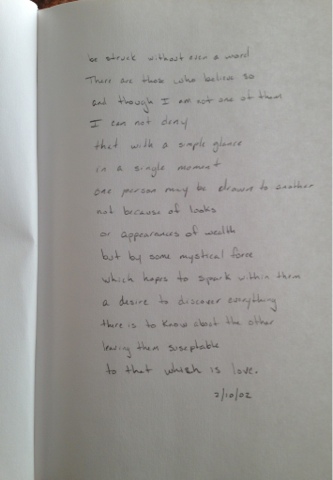 be struck without even a word
There are those who believe so
and though I am not one of them
I can not deny
that with a simple glance
in a single moment
one person may be drawn to another
not because of looks
or appearances of wealth
but by some mystical force
which hopes to spark within them
a desire to discover everything
there is to know about the other
leaving them suseptable
to that which is love.
2/10/02